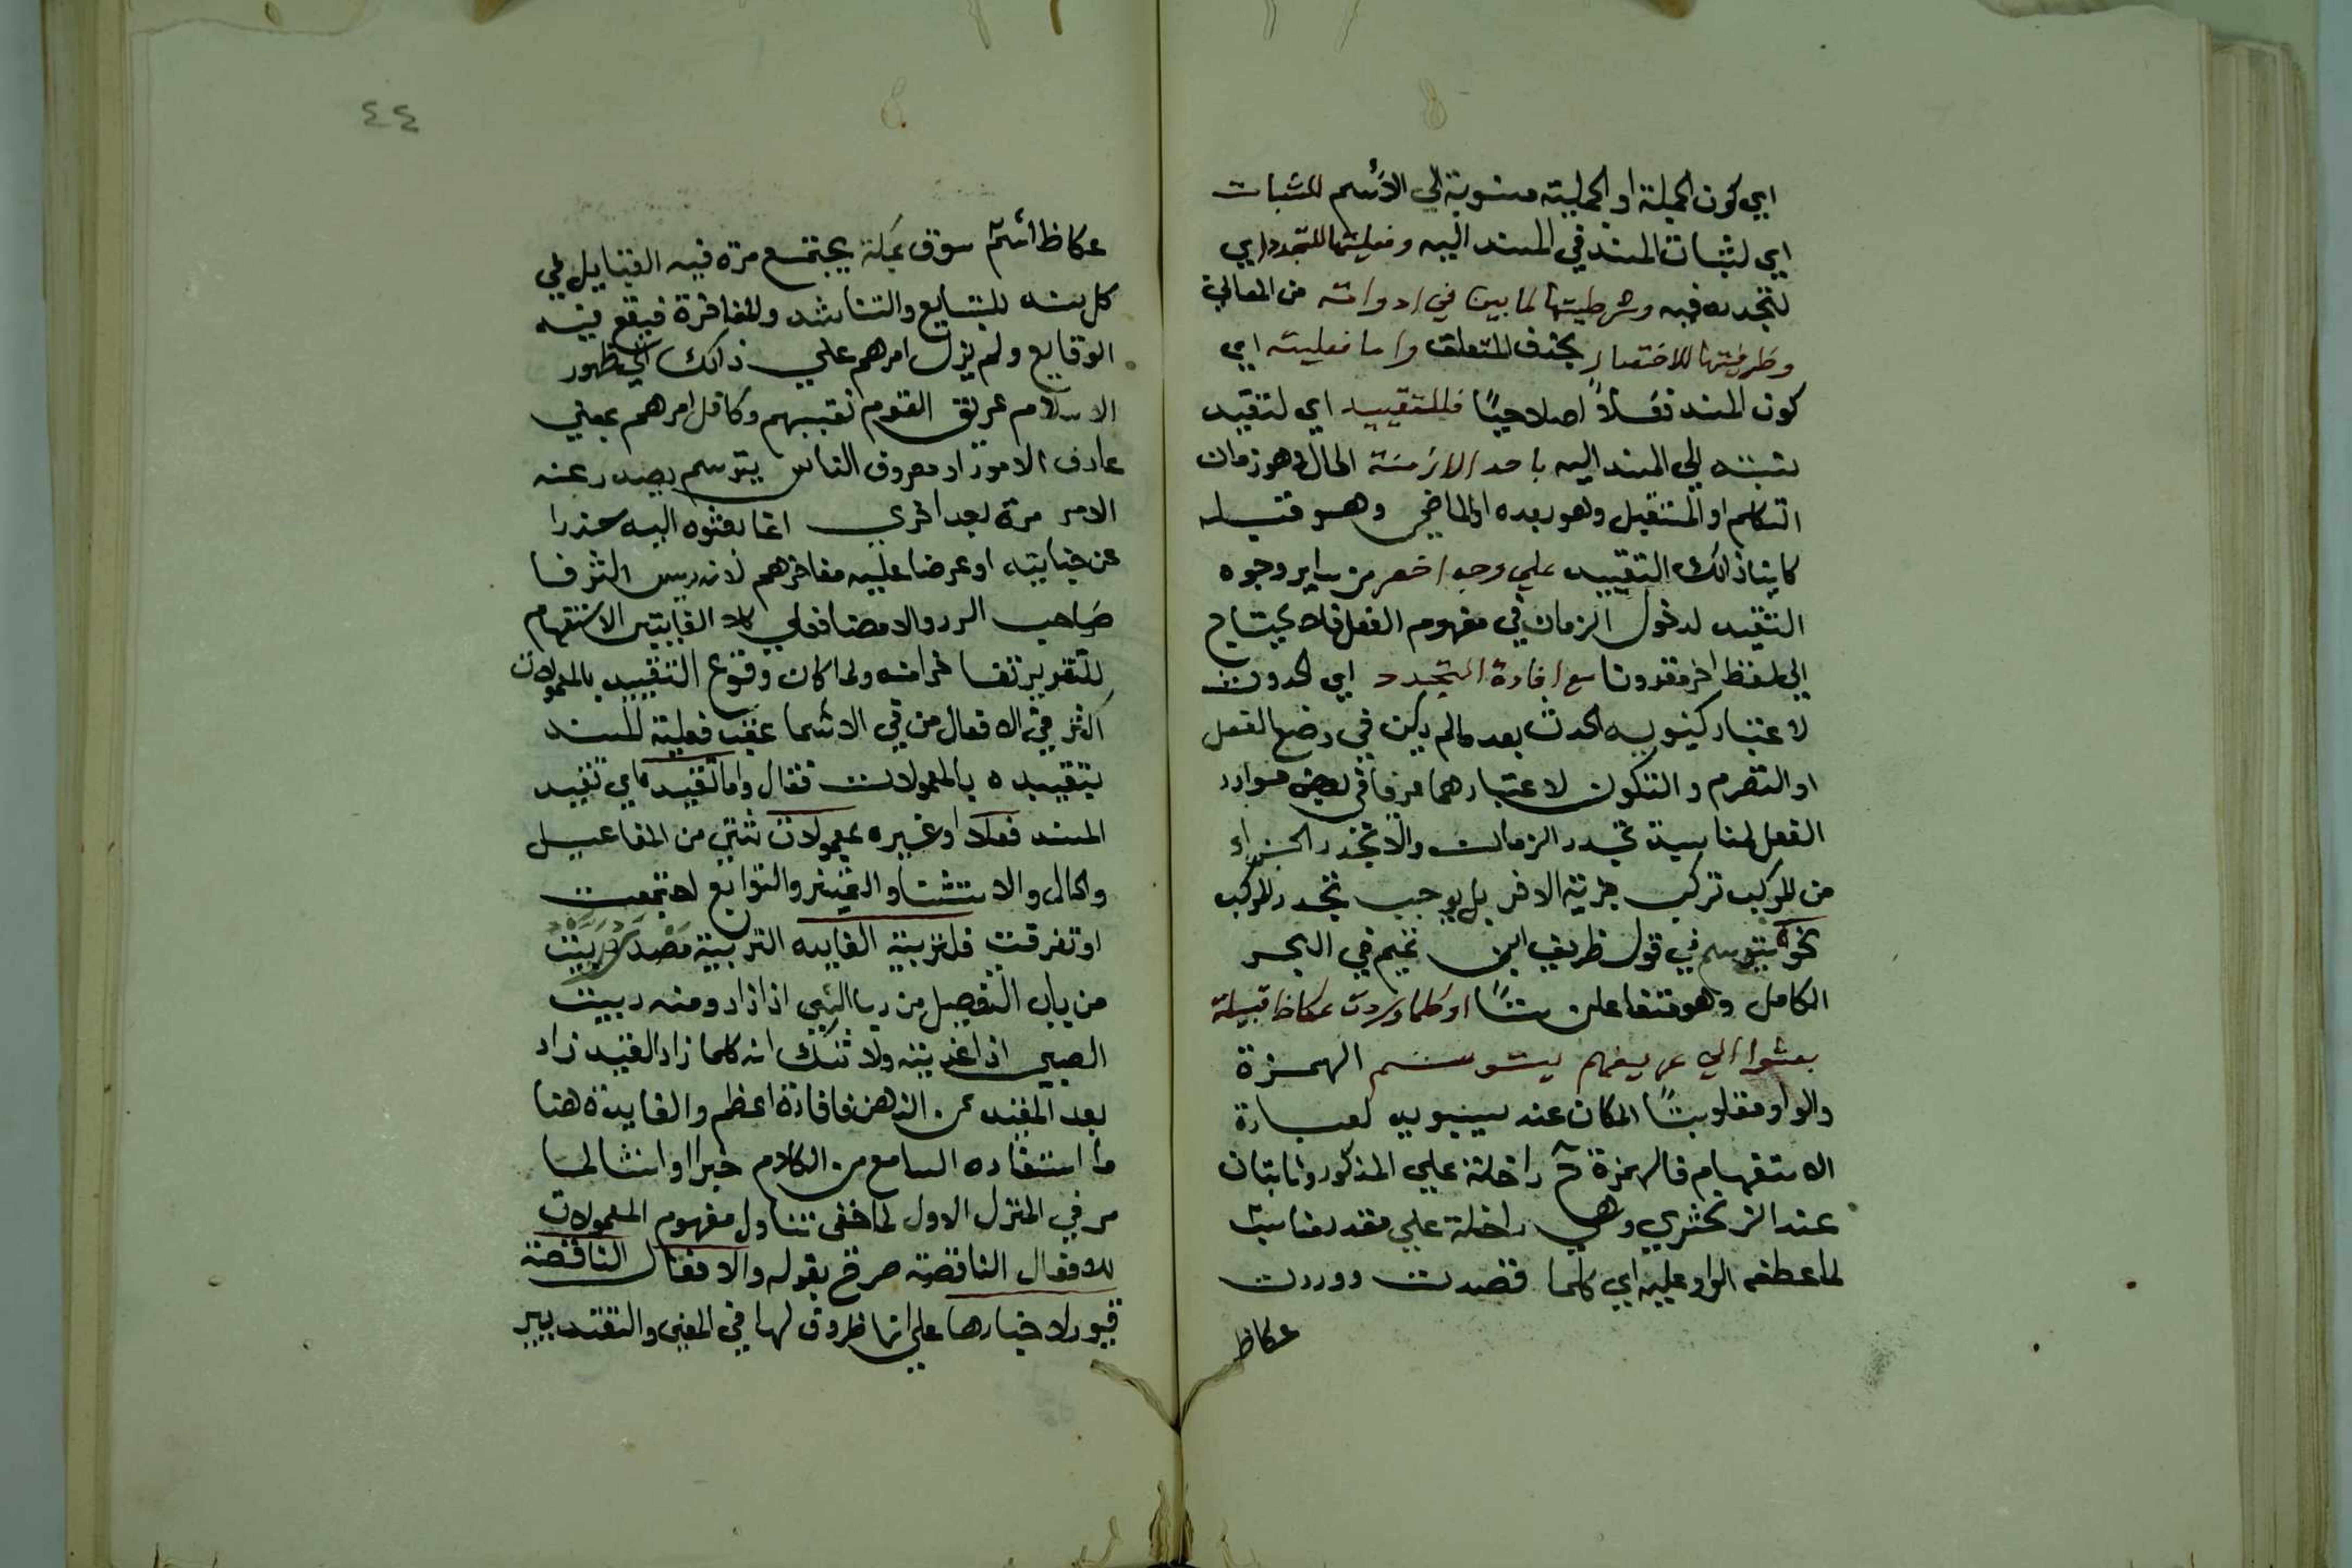 اي كون الجملة او الجملية منسوبة الي الاسم للثبات
اي لثبات المسند في المسند اليه وفعليتها للتجدد اي
لتجدده فيه وشرطيتها لما بين في ادواته من المعاني
وظرفيتها للاختصار بحذف المتعلق واما فعليته اي
كون المسند فعلاً اصلاحيًا فللتقييد اي لتقييد
نسبته الي المسند اليه باحد الازمنة الحال وهو زمان
التكلم او المستقبل وهو بعده او الماضي وهو قبله
كاينا ذالك التقييد علي وجه اخصر من ساير وجوه
التقييد لدخول الزمان في مفهوم الفعل فلا يحتاج
الي لفظ اخر مقرونا مع افادة التجدد اي الحدوث
لاعتبار كينوبيه الحدث بعد مالم يكن في وضع الفعل
او التصرم والتكون لاعتبارهما عرفا في بعض موارد
الفعل لمناسبة تجدد الزمان والا تجدد الجزء
من المركب تركب جزيية الاخر بل يوجب تجدد المركب
نحو يتوسم في قول ظريف ابن تميم في البحر
الكامل وهو متفاعلن ستًا او كلما وردت عكاظ قبيلة
بعثوا الي عريفهم يتوسم الهمزة
والواو مقلوبتا المكان عند سيبويه لصدارة
الاستفهام فالهمزة ح داخلة علي المذكور وثابتان
عند الزمخشري وهي داخلة علي مقدر مناسب
لما عطفه الواو عليه اي كلما قصدت ووردت
عكاظ
٤٤
عكاظ اسم سوق بمكة يجتمع مرة فيه القبايل في
كل سنه للتبايع والتناشد والمفاخرة فيقع فيه
الوقايع ولم يزل امرهم علي ذالك الي ظهور
الاسلام عريق القوم نقيبهم وكافل امرهم بمعني
عارف الامور او معروف الناس يتوسم يصدر عنه
الامر مرة بعد اخري انما بعثوه اليه حذرا
عن جنايته او عرضا عليه مفاخرهم لانه ريس الشرفا
صاحب الرد والامضا فعلي كلا الغايتين الاستفهام
للتقرير تفاخرا منه ولما كان وقوع التقييد بالمعمولات
اكثر في الافعال من في الاسما عقب فعلية المسند
بتقييده بالمعمولات فقال واما تقييد اي تقييد
المسند فعلا او غيره بمعمولات شتي من المفاعيل
والحال والاستثنا والتمييز والتوابع اجتمعت
او تفرقت فلتربية الفايده التربية مصدر ربيت
من باب التفعيل من ربا الشي اذا زاد ومنه ربيت
الصبي اذا غذيته ولا شك انه كلما زاد القيد زاد
بعد المقيد عن الذهن فافادة اعظم والفايدة هنا
ما استفاده السامع من الكلام خبرا او انشا لما
مر في المنزل الاول لما خفي تناول مفهوم المعمولات
للافعال الناقصة صرح بقوله والافعال الناقصة
قيود لاخبارها علي انها ظروف لها في المعني والتقدير